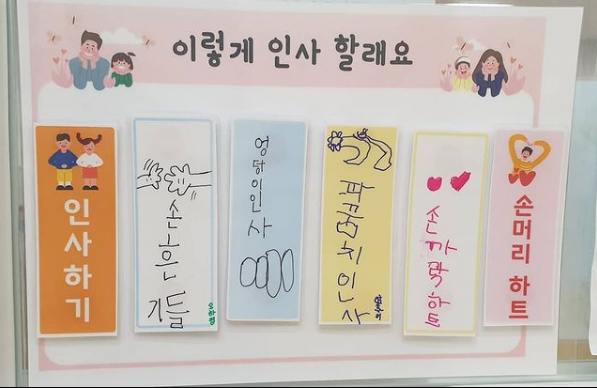 이렇게 인사 할래요
인사하기
손흔들기
엉덩이인사
파꿈치인사
손까락하트
손머리 하트